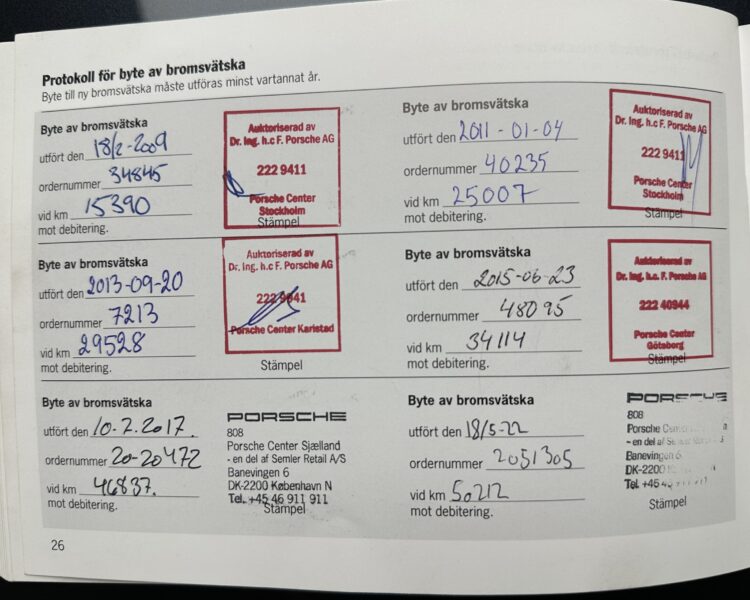 Protokoll för byte av bromsvätska
Byte till ny bromsvätska måste utföras minst vartannat år.
Byte av bromsvätska
utfört den 18/2-2009
ordernummer 34845
vid km 15390
mot debitering.
Auktoriserad av
Dr. Ing. h.c F. Porsche AG
222 9411
Porsche Center
Stockholm
Stämpel
Byte av bromsvätska
utfört den 2011-01-04
ordernummer 40235
vid km 25007
mot debitering.
Auktoriserad av
Dr. Ing. h.c F. Porsche AG
222 9411
Porsche Center
Stockholm
Stämpel
Byte av bromsvätska
utfört den 2013-09-20
ordernummer 7213
vid km 29528
mot debitering.
Auktoriserad av
Dr. Ing. h.c F. Porsche AG
Porsche Center Karlstad
Stämpel
Byte av bromsvätska
utfört den 2015-06-23
ordernummer 48095
vid km 34114
mot debitering.
Auktoriserad av
Dr. Ing. h.c. F. Porsche AG
222 40944
Porsche Center
Göteborg
Stämpel
Byte av bromsvätska
utfört den 10-7.2017.
ordernummer 20-20472
vid km 46837.
mot debitering.
PORSCHE
808
Porsche Center Sjælland
- en del af Semler Retail A/S
Banevingen 6
DK-2200 København N
Tel. +45 46 911 911
Stämpel
Byte av bromsvätska
utfört den 18/5-22
ordernummer 2051305
vid km 50212
mot debitering.
PORSCHE
808
Porsche
- en del af
Banevingen 6
DK-2200
Tel. +45
Stämpel
26